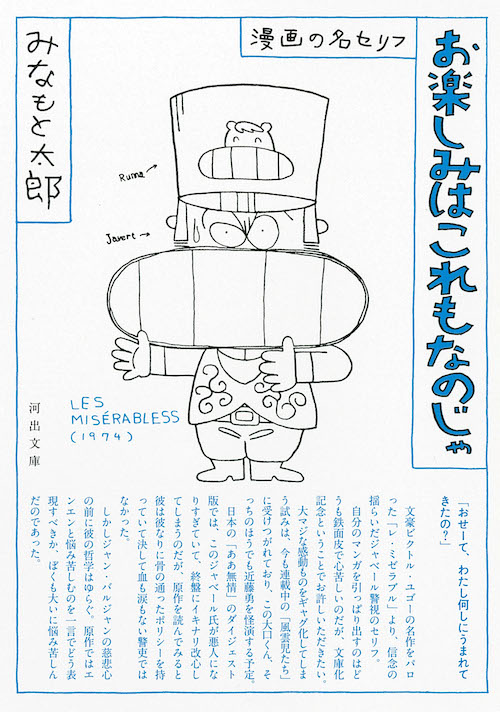 お楽しみはこれもなのじゃ
漫画の名セリフ
みなもと太郎
Ruma→
Javert→
LES
MISÉRABLESS
(1974)
河出文庫
「おせーて、わたし何しにうまれて
きたの？」
文豪ビクトル・ユゴーの名作をパロ
った「レ・ミゼラブル」より、信念の
揺らいだジャベール警視のセリフ。
自分のマンガを引っぱり出すのはど
うも鉄面皮で心苦しいのだが、文庫化
記念ということでお許しいただきたい。
大マジな感動ものをギャグ化してしま
う試みは、今も連載中の「風雲児たち」
に受けつがれており、この大口くん、そ
っちのほうでも近藤勇を怪演する予定。
日本の「ああ無情」のダイジェスト
版では、このジャベール氏が悪人にな
りすぎていて、終盤にイキナリ改心し
てしまうのだが、原作を読んでみると
彼は彼なりに骨の通ったポリシーを持
っていて決して血も涙もない警吏では
なかった。
しかしジャン・バルジャンの慈悲心
の前に彼の哲学はゆらぐ。原作ではエ
ンエンと悩み苦しむのを一言でどう表
現すべきか、ぼくも大いに悩み苦しん
だのであった。